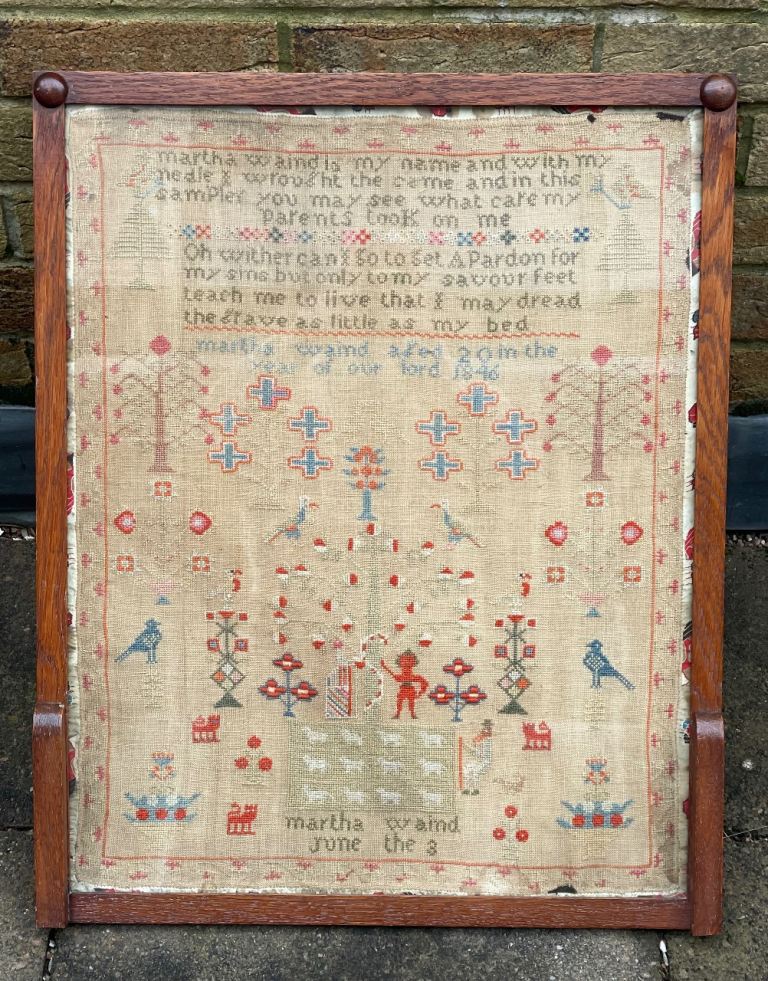 martha waind is my name and with my
nedle I wrought the came and in this
sampler you may see what care my
parents took on me
Oh wither can I go to get A Pardon for
my sins but only to my savour feet
teach me to live that I may dread
the grave as little as my bed
martha waind aged 20 in the
year of our lord 1846
martha waind
June the 3